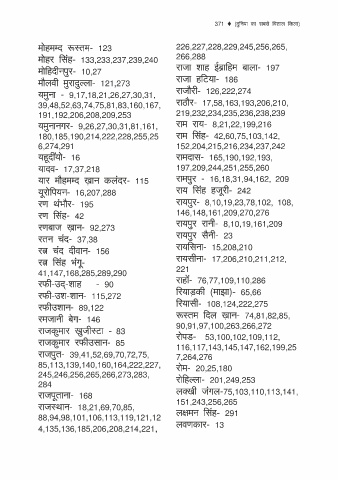 371 ♦ (दुनिया का सबसे विशाल किला)
मोहमम्द रूस्तम- 123
मोहर सिंह- 133,233,237,239,240
मोहिदीनपुर- 10,27
मौलवी मुरादुल्ला- 121,273
यमुना - 9,17,18,21,26,27,30,31,
39,48,52,63,74,75,81,83,160,167,
191,192,206,208,209,253
यमुनानगर- 9,26,27,30,31,81,161,
180,185,190,214,222,228,255,25
6,274,291
यहूदीयो- 16
यादव- 17,37,218
यार मौहमम्द खान कलंदर- 115
यूरोपियन- 16,207,288
रण थंभौर- 195
रण सिंह- 42
रणबाज खान- 92,273
रतन चंद- 37,38
रत्न चंद दीवान- 156
रत्न सिंह भंगू-
41,147,168,285,289,290
रफी-उद्-शाह - 90
रफी-उश-शान- 115,272
रफीउशान- 89,122
रमजानी बेग- 146
राजकुमार खुजीस्टा - 83
राजकुमार रफीउसान- 85
राजपुत- 39,41,52,69,70,72,75,
85,113,139,140,160,164,222,227,
245,246,256,265,266,273,283,
284
राजपूताना- 168
राजस्थान- 18,21,69,70,85,
88,94,98,101,106,113,119,121,12
4,135,136,185,206,208,214,221,
226,227,228,229,245,256,265,
266,288
राजा शाह ईब्राहिम बाला- 197
राजा हटिया- 186
राजौरी- 126,222,274
राठौर- 17,58,163,193,206,210,
219,232,234,235,236,238,239
राम राय- 8,21,22,199,216
राम सिंह- 42,60,75,103,142,
152,204,215,216,234,237,242
रामदास- 165,190,192,193,
197,209,244,251,255,260
रामपुर - 16,18,31,94,162, 209
राय सिंह हजूरी- 242
रायपुर- 8,10,19,23,78,102, 108,
146,148,161,209,270,276
रायपुर रानी- 8,10,19,161,209
रायपुर सैनी- 23
रायसिना- 15,208,210
रायसीना- 17,206,210,211,212,
221
राहों- 76,77,109,110,286
रियाडकी (माझा)- 65,66
रियासी- 108,124,222,275
रूस्तम दिल खान- 74,81,82,85,
90,91,97,100,263,266,272
रोपड- 53,100,102,109,112,
116,117,143,145,147,162,199,25
7,264,276
रोम- 20,25,180
रोहिल्ला- 201,249,253
लक्खी जंगल-75,103,110,113,141,
151,243,256,265
लक्षमन सिंह- 291
लवणकार- 13